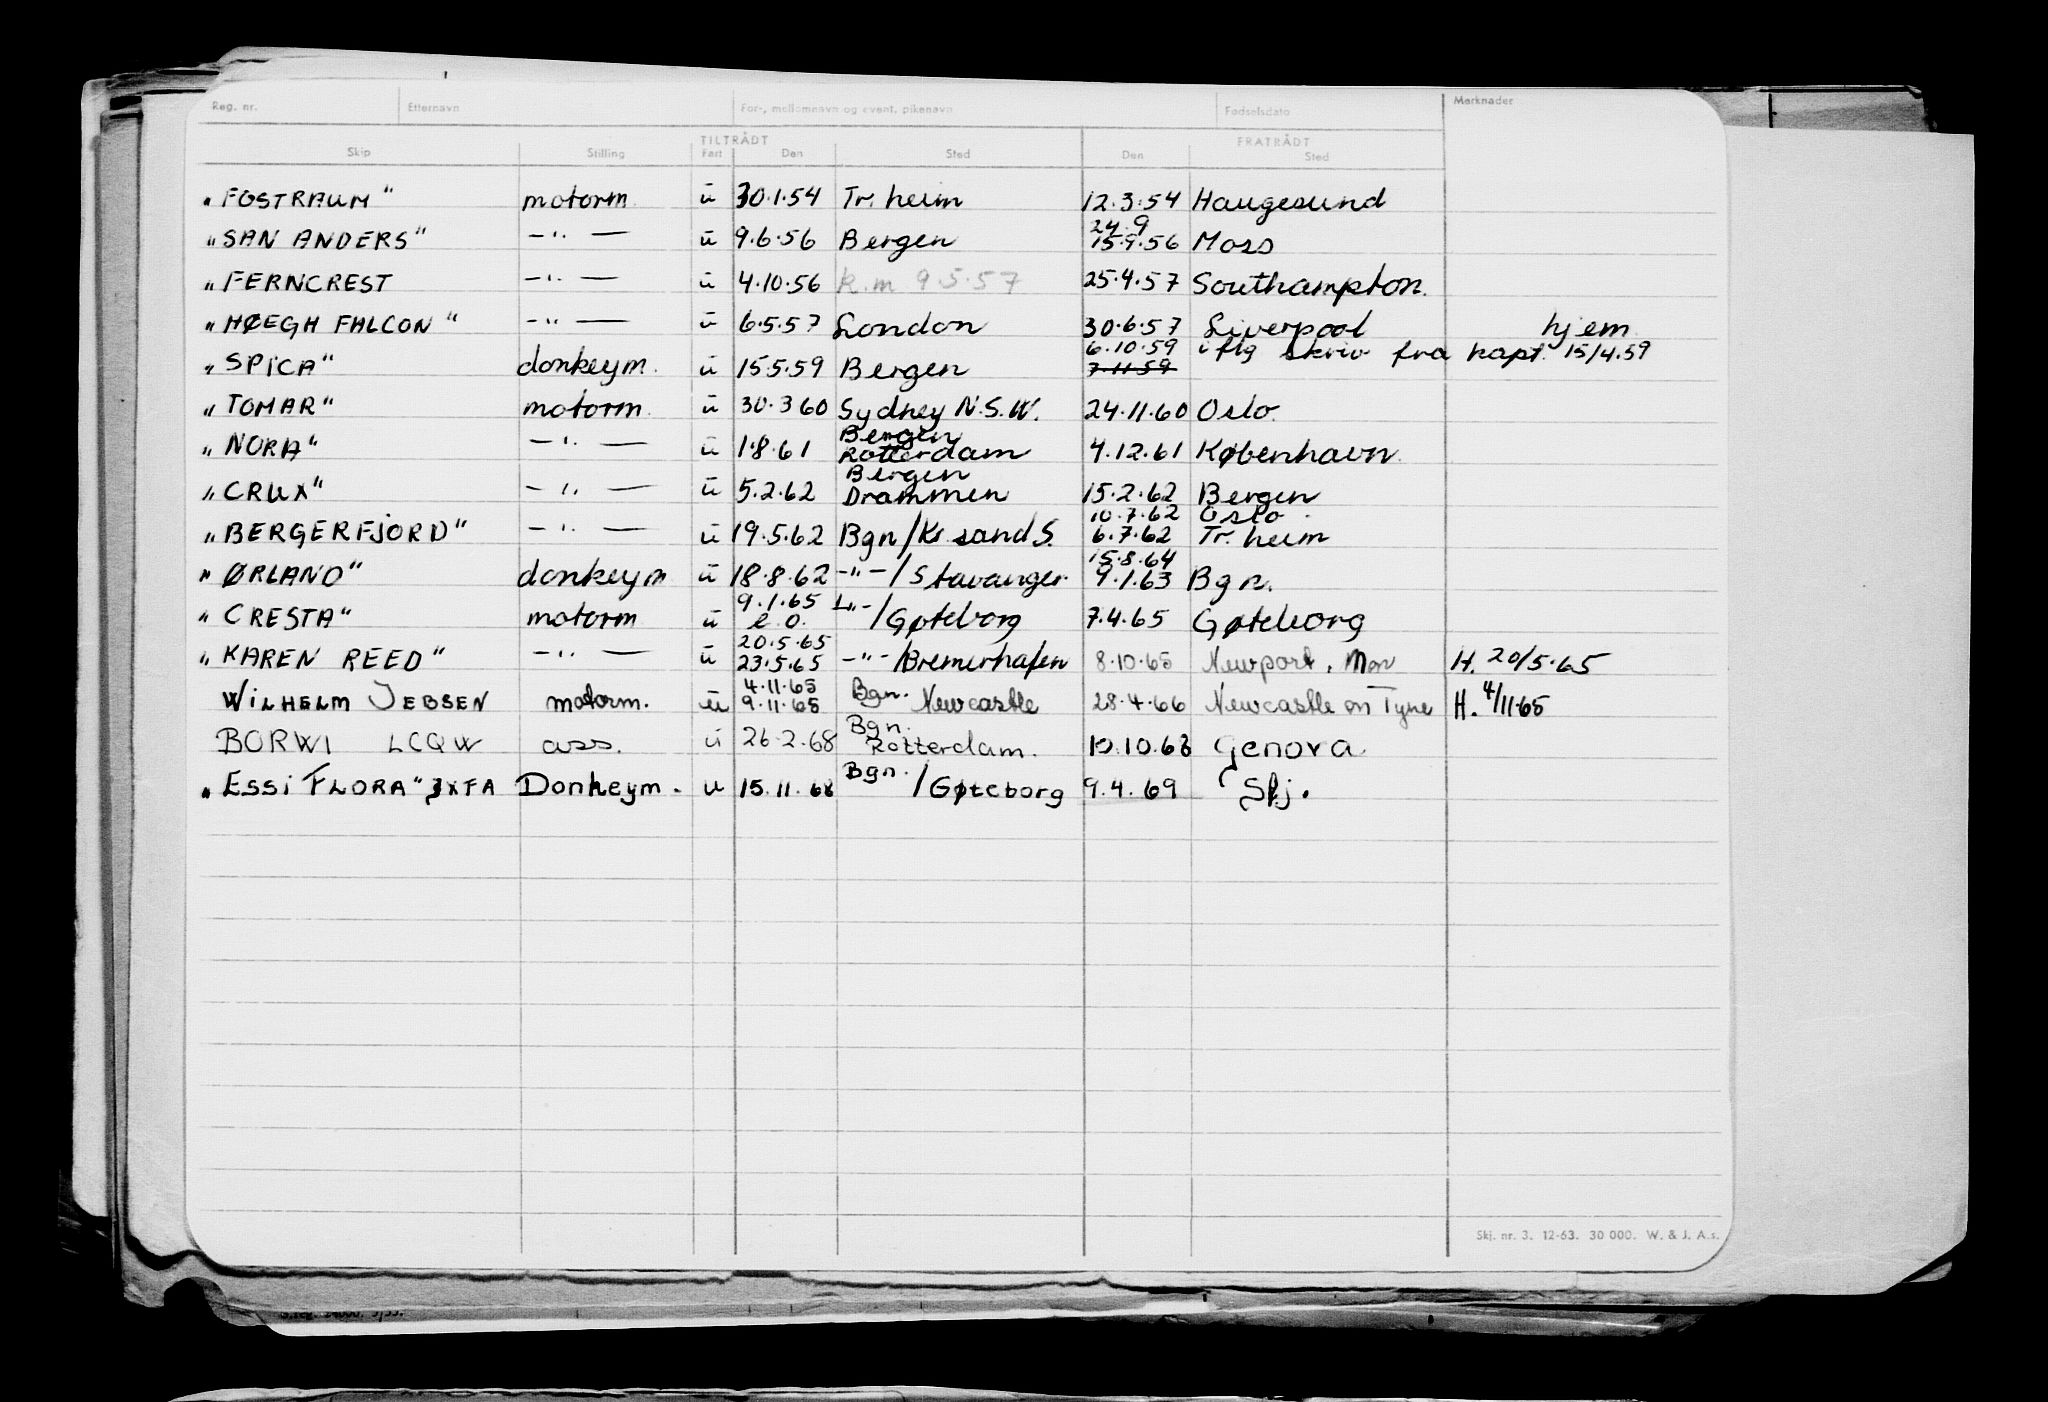 Reg. nr. Etternavn For-, mellomnavn og event. pikenavn Fødselsdato Merknader
TILTRÅDT FRATRÅDT
Skip Stilling Fart Den Sted Den Sted
"FOSTRAUM" motorm. ū 30.1.54 Tr. heim 12.3.54 Haugesund
24.9
"SAN ANDERS" -"- ū 9.6.56 Bergen 15.9.56 Moss
"FERNCREST -"- ū 4.10.56 k.m 9.5.57 25.4.57 Southampton.
"HØEGH FALCON" -"- ū 6.5.57 London 30.6.57 Liverpool hjem
6.10.59 iflg skriv fra kapt. 15/4.59
"SPICA" donkeym. ū 15.5.59 Bergen 7.11.59
"TOMAR" motorm. ū 30.3 60 Sydney N.S.W. 24.11.60 Oslo.
Bergen
"NORA" -"- ū 1.8.61 Rotterdam 4.12.61 København
Bergen
"CRUX" -"- ū 5.2.62 Drammen 15.2.62 Bergen
10.7.62 Oslo.
"BERGERFJORD" -"- ū 19.5.62 Bgn/Kr.sand S. 6.7.62 Tr. heim
15.8.64
"ØRLAND" donkeym ū 18.8.62 -"-/Stavanger 9.1.63 Bgn.
9.1.65
"CRESTA" motorm ū e.o. -"-/Gøteborg 7.4.65 Gøteborg
20.5.65
"KAREN REED" -"- ū 23.5.65 -"-/Bremerhafen 8.10.65 Newport, Mon H. 20/5.65
4.11.65 Bgn.
WILHELM JEBSEN motorm. ū 9.11.65 Newcastle 28.4.66 Newcastle on Tyne H. 4/11.65
Bgn.
BORWI LCQW ass. ū 26.2.68 Rotterdam. 10.10.68 Genova
Bgn.
"ESSI FLORA" JXFA Donkeym. u 15.11.68 /Gøteborg 9.4.69 Skj.
Skj. nr. 3. 12-63. 30 000. W. & J. A.s.